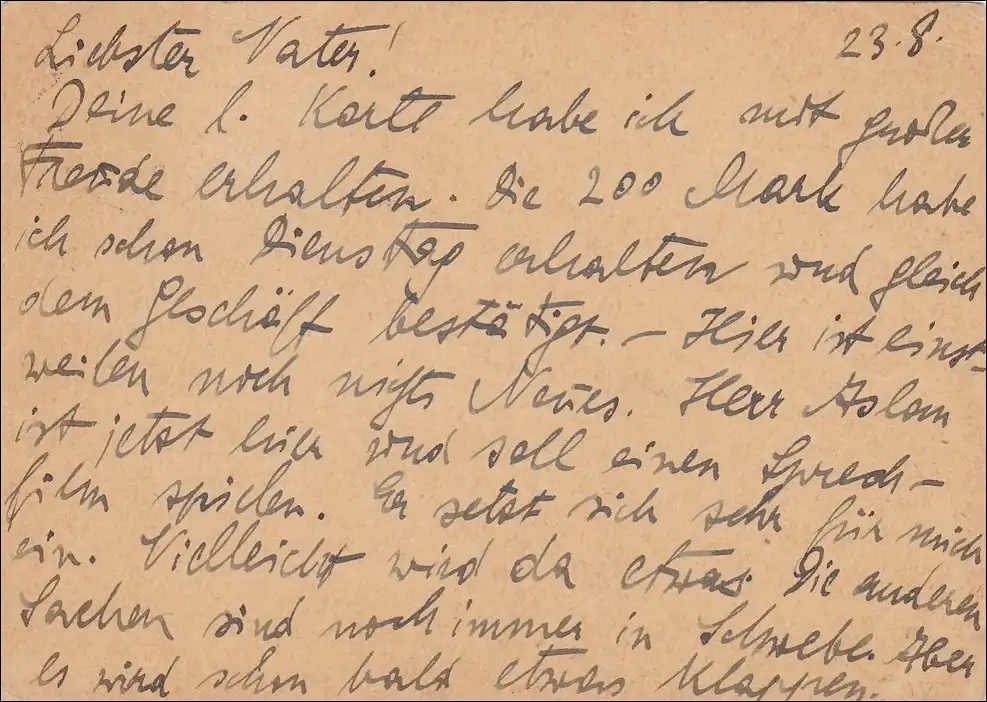 23.8.
Liebster Vater!
Deine l. Karte habe ich mit großer
Freude erhalten. Die 200 Mark habe
ich schon Dienstag erhalten und gleich
dem Geschäft bestätigt. – Hier ist einst-
weilen noch nichts Neues. Herr Aslan
ist jetzt hier und soll einen Sprech-
film spielen. Er setzt sich sehr für mich
ein. Vielleicht wird da etwas. Die anderen
Sachen sind noch immer in Schwebe. Aber
es wird schon bald etwas klappen.